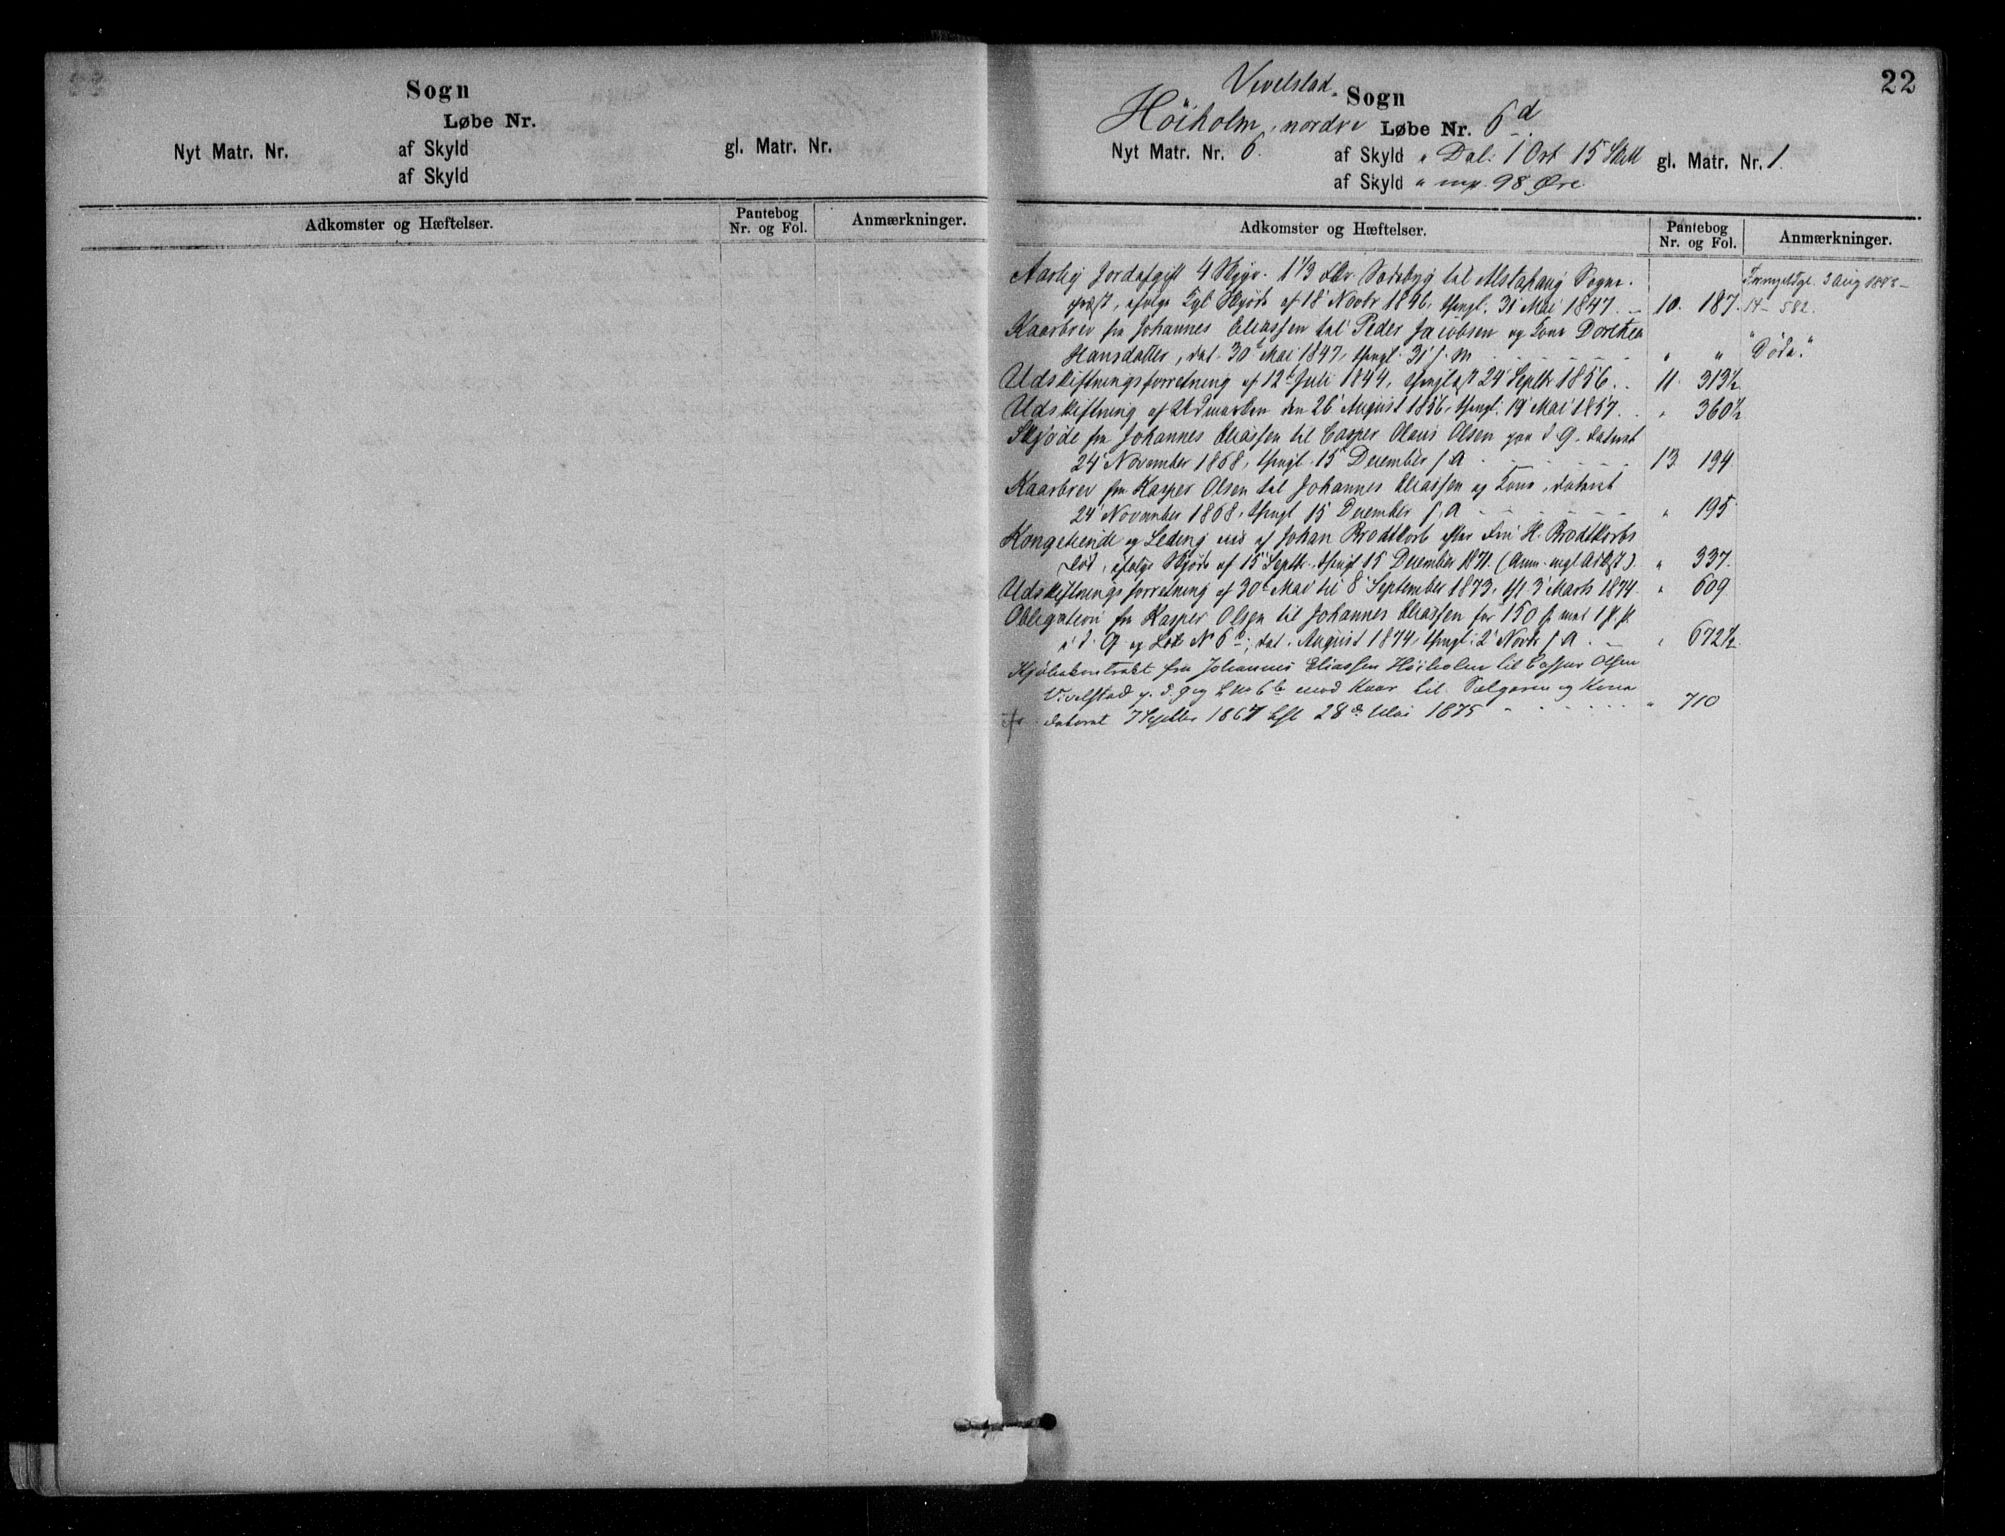 Sogn
Løbe Nr.
Nyt Matr. Nr. af Skyld gl. Matr. Nr.
af Skyld
Adkomster og Hæftelser. Pantebog Nr. og Fol. Anmærkninger.
22
Vivelstad Sogn
Höiholm, nordre Løbe Nr. 6d
Nyt Matr. Nr. 6. af Skyld " Dal: 1 Ort 15 Skill gl. Matr. Nr. 1.
af Skyld " 98 Øre
Adkomster og Hæftelser. Pantebog Nr. og Fol. Anmærkninger.
Aarlig Jordafgift 4 1 1/3 til Alstahaug Sogne- 3 Aug
præst, ifølge Kgl. Skjøde af 18 Novbr 1846, thingl. 31 Mai 1847. 10. 187. 14 - 582.
Kaarbrev fra Johannes Eliassen til Peder Jacobsen og Kone Dorthea
Hansdatter, dat. 30 Mai 1847, thingl. 31 s. M. " " "Døde."
Udskiftningsforretning af 12 Juli 1844, thinglæst 24 Septbr 1856. 11. 313½
Udskiftning af Udmarken den 26 August 1856, thingl. 19 Mai 1857. " 360½
Skjøde fra Johannes Eliassen til Casper Olaus Olsen paa d. G. dateret
24 November 1868, thingl. 15 December s. A. 13 194
Kaarbrev fra Kasper Olsen til Johannes Eliassen og Kone, dateret
24 November 1868, thingl 15 December s. A. " 195
Kongetiende og Leding af Johan Brodtkorb efter Fru H. Brodtkorbs
Død, ifølge Skjøde af 15 Septbr, thingl 15 December 1871. " 337.
Udskiftningsforretning af 30 Mai til 8 September 1873, tgl 3 Marts 1874 " 609
Obligation fra Kasper Olsen til Johannes Eliassen for 150 mod 1 p. p.
i d. G og Løb. N 6b, dat. August 1874, thingl. 2 Novbr s. A. " 672½
Kjøbekontrakt fra Johannes Eliassen Høiholm til Casper Olsen
Vivelstad p. d. g og L No 6b mod Kaar til Sælgeren og Kone
dateret 7 Septbr 1867 28 Mai 1875 " 710